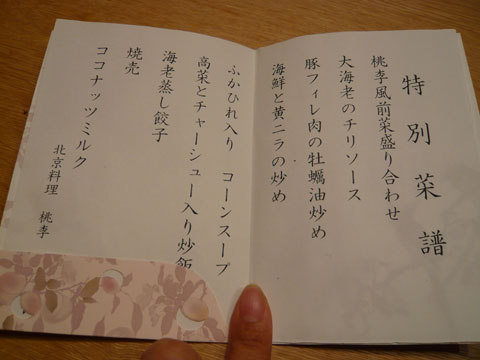 特別菜譜
桃李風前菜盛り合わせ
大海老のチリソース
豚フィレ肉の牡蠣油炒め
海鮮と黄ニラの炒め
ふかひれ入り　コーンスープ
高菜とチャーシュー入り炒飯
海老蒸し餃子
焼売
ココナッツミルク
北京料理　桃李